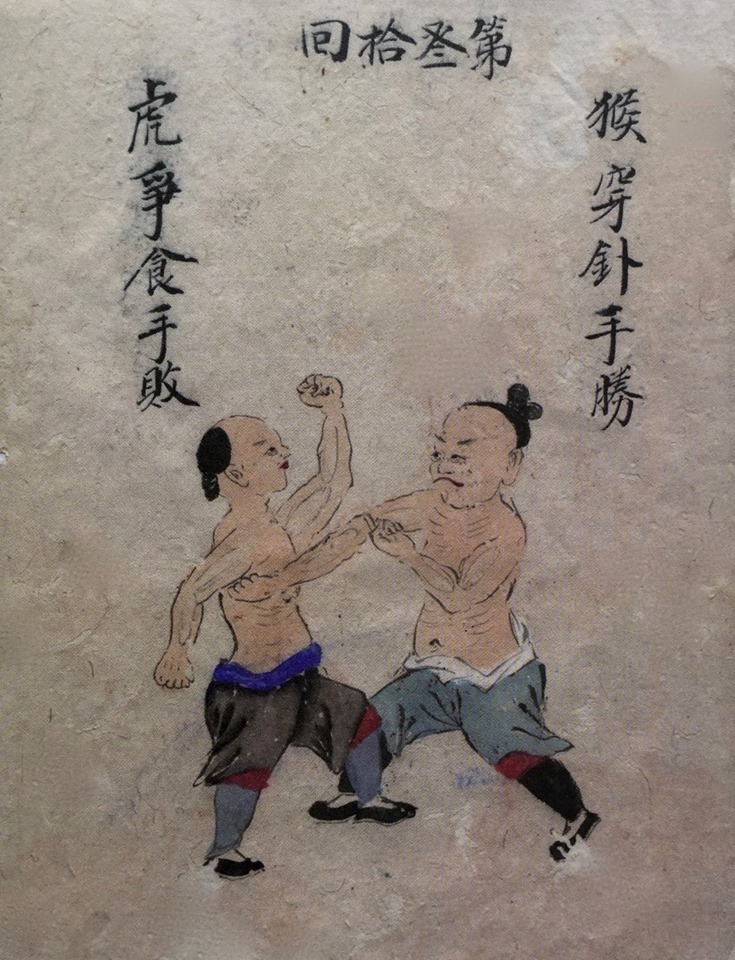 第叁拾回
猴穿針手勝
虎爭食手敗